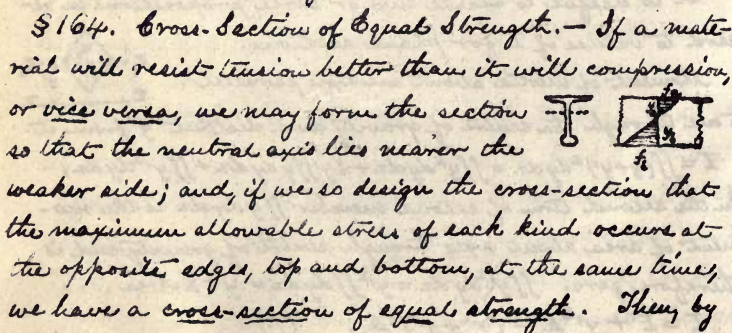 §164. Cross-Section of Equal Strength.— If a mate-
rial will resist tension better than it will compression,
or vice versa, we may form the section
so that the neutral axis lies nearer the
weaker side; and, if we so design the cross-section that
the maximum allowable stress of each kind occurs at
the opposite edges, top and bottom, at the same time,
we have a cross-section of equal strength. Then, by